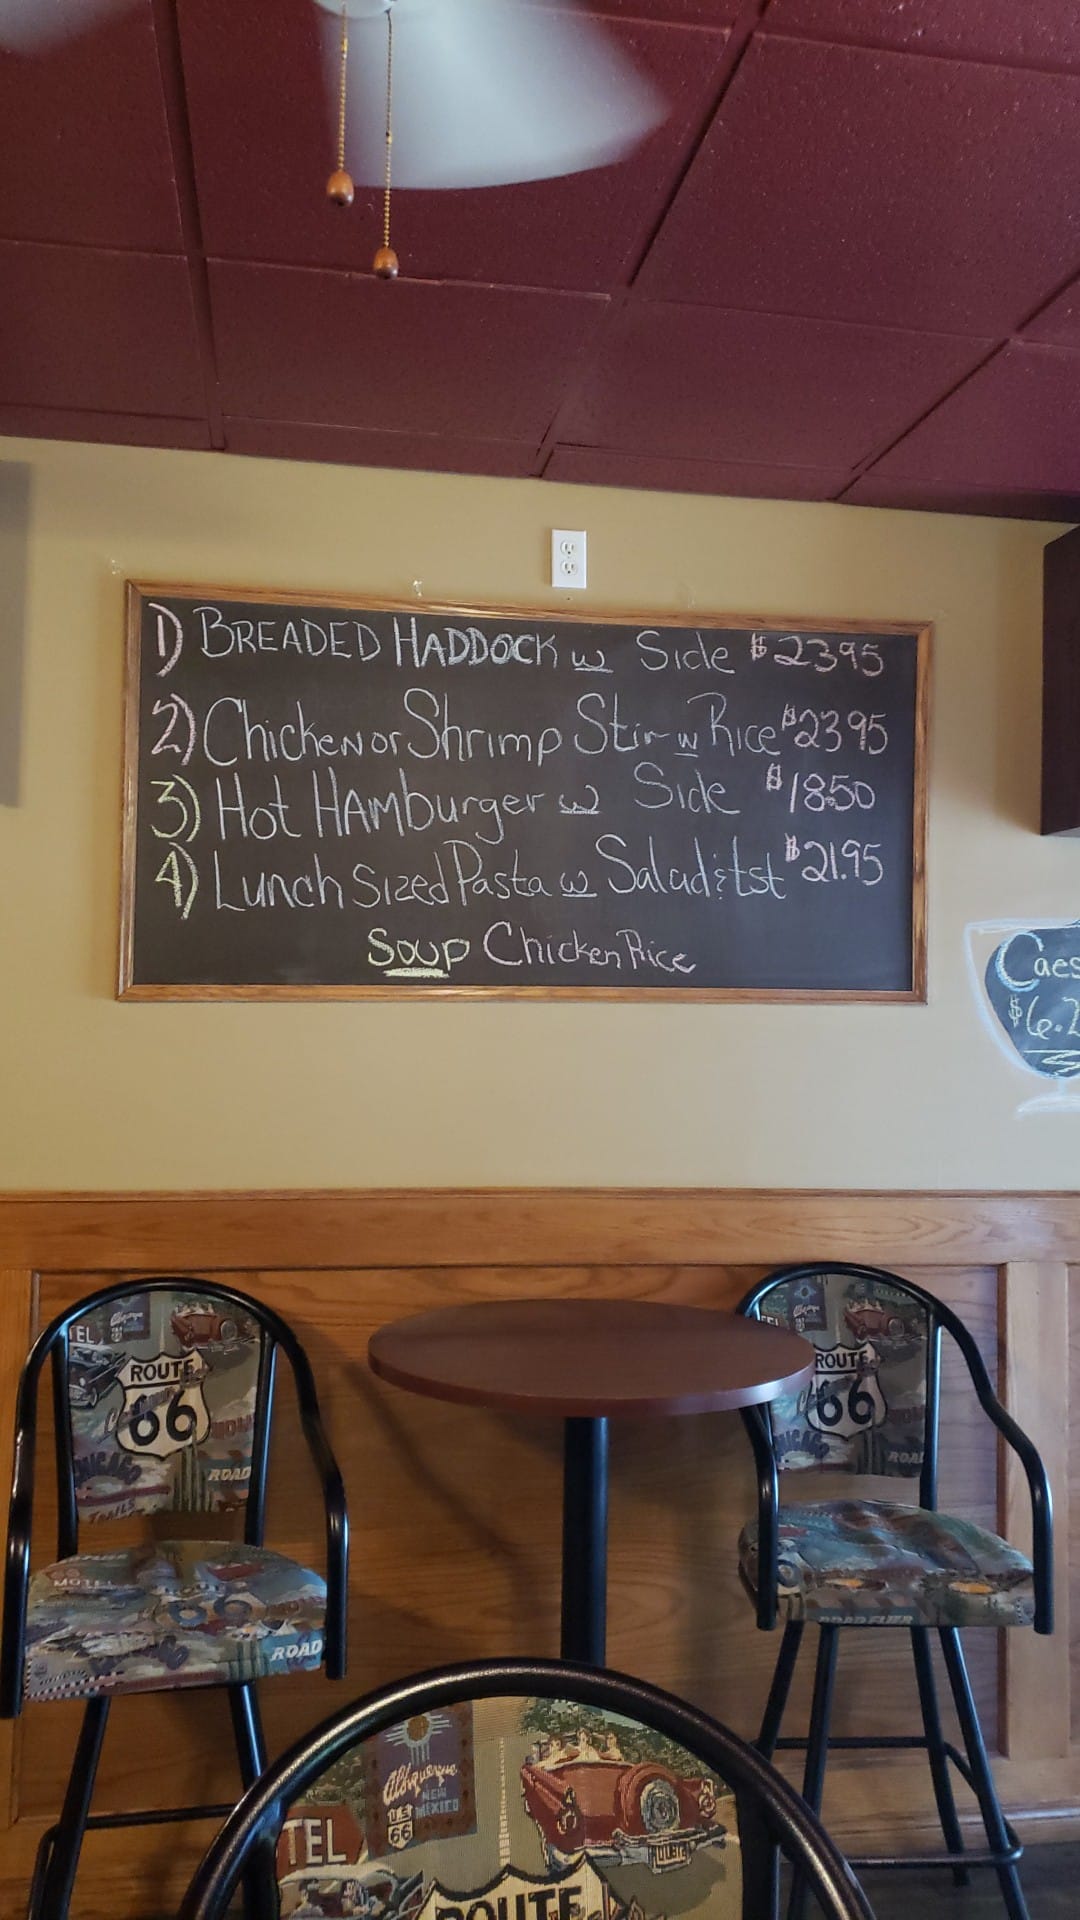 1) BREADED HADDOCK w Side $2395
2) Chicken or Shrimp Stir w Rice $2395
3) Hot HAMburger w Side $18.50
4) Lunch Sized Pasta w Salad & tst $21.95
Soup Chicken Rice
Caes
$6.2
TEL
ROUTE
66
CHICAGO
ROAD
TRAILS
MOTEL
ROAD
Albuquerque
ROUTE
66
ROAD
Albuquerque
NEW
MEXICO
US
66
TEL
ROUTE